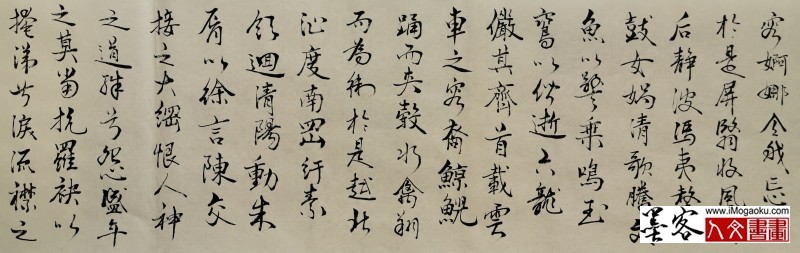 容婀娜令我忘
於是屏翳收風
后静波馮夷
鼓女媧清歌騰文
魚以警乗鳴玉
鸞以偕逝六龍
儼其齊首載雲
車之容裔鯨鯢
踊而夾轂水禽翔
而為衛於是越北
沚度南岡紆素
領迴清陽動朱
脣以徐言陳交
接之大綱恨人神
之道殊兮怨盛年
之莫當抗羅袂以
掩涕兮淚流襟之
www.iMogaoku.com
墨客
人文書畫